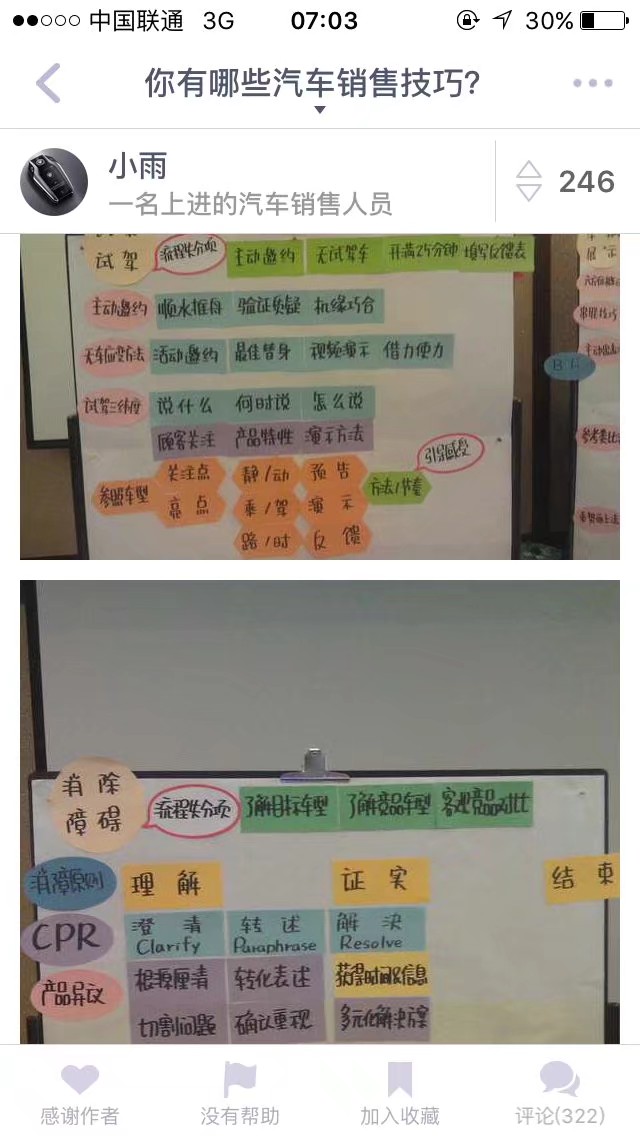 中国联通 3G 07:03 30%
你有哪些汽车销售技巧?
小雨
一名上进的汽车销售人员
246
试驾 流程失分项 主动邀约 无试驾车 开满25分钟 填写反馈表
主动邀约 顺水推舟 验证质疑 机缘巧合
无车应变方法 活动邀约 最佳替身 视频演示 借力使力
试驾三纬度 说什么 何时说 怎么说
顾客关注 产品特性 演示方法
引导感受
参照车型 关注点 静/动 预告 方法/节奏
亮点 乘/驾 演示
路/时 反馈
展示
消除
障碍
流程失分项 了解目标车型 了解竞品车型 客观竞品对比
消障原则 理解 证实 结束
CPR 澄清 转述 解决
Clarify Paraphrase Resolve
产品异议 根源厘清 转化表述 获得时间及信息
切割问题 确认重视 多元化解决方案
感谢作者 没有帮助 加入收藏 评论(322)